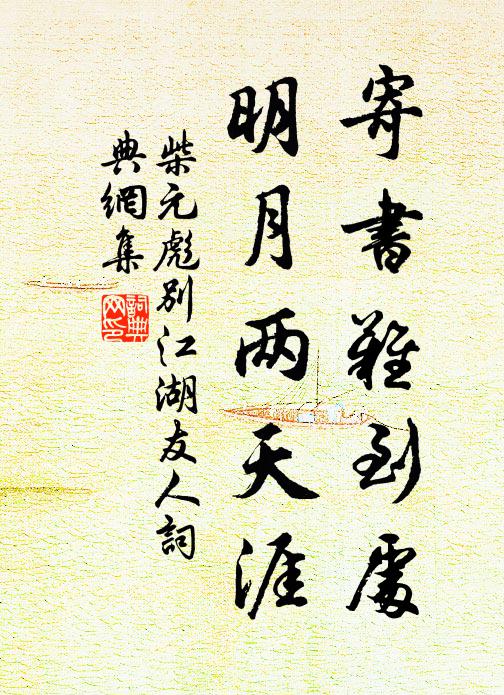 寄書難到處
明月两天涯
柴元彪別江湖友人詞
典網集
詞典
网印